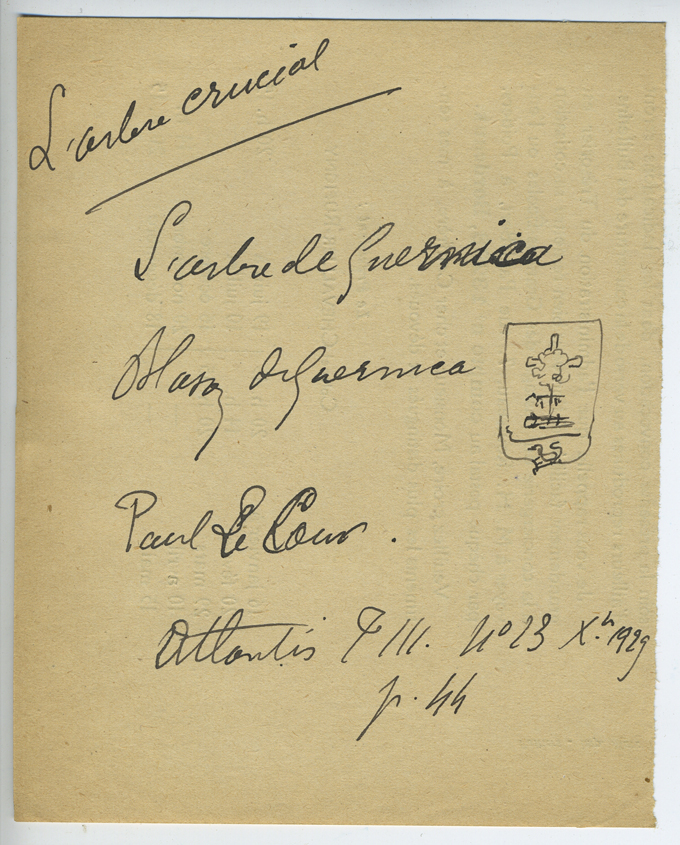 L'arbre crucial
L'arbre de Guernica
Blason de Guernica
Paul Le Cour.
Atlantis T III. no 23 Xbre 1929
p. 44